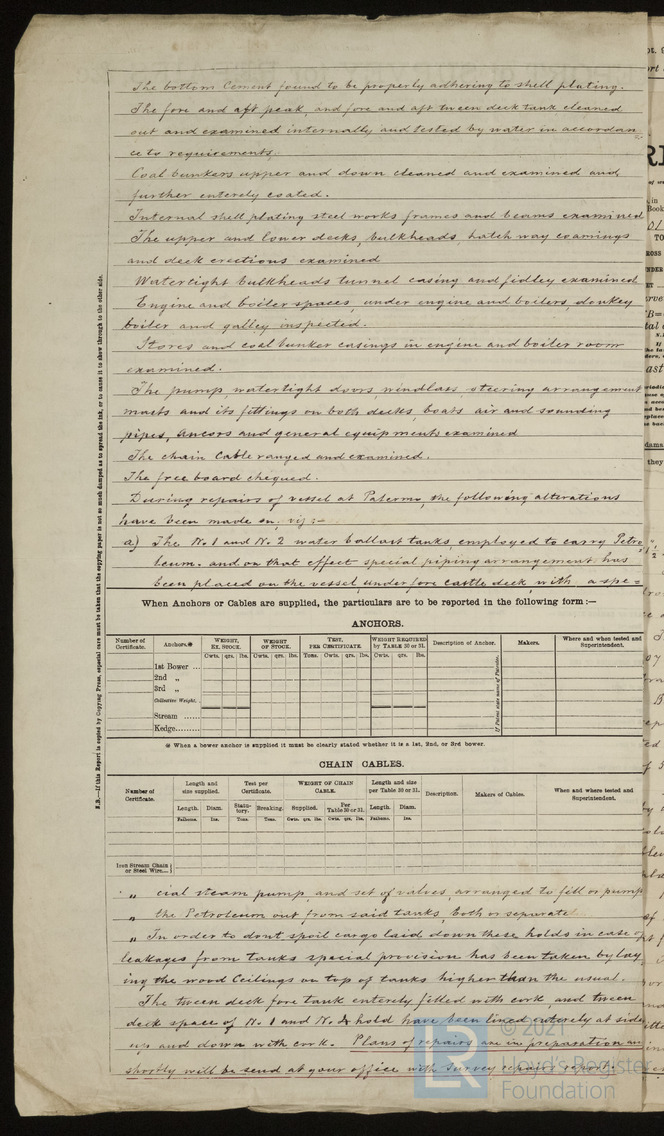 The bottom Cement found to be properly adhering to shell plating.
The fore and aft peak, and fore and aft tween deck tank cleaned
out and examined internally and tested by water in accordan=
ce to requirements.
Coal bunkers upper and down cleaned and examined and
further enterely coated.
Internal shell plating steel works frames and beams examined
The upper and lower decks, bulkheads, hatch way coamings
and deck erections examined
Watertight bulkheads tunnel casing and fidley examined
Engine and boiler spaces, under engine and boilers, donkey
boiler and galley inspected.
Stores and coal bunker casings in engine and boiler room
examined.
The pump, watertight doors, windlass steering arrangement
masts and its fittings on both decks, boats air and sounding
pipes, ancors and general equipments examined
The chain Cable ranged and examined.
The free board chequed.
During repairs of vessel at Palermo, the following alterations
have been made on, viz:-
a) The No. 1 and No. 2 water ballast tanks, employed to carry Petro
leum. and on that effect special piping arrangement has
been placed on the vessel, under fore castle deck, with a spe=
When Anchors or Cables are supplied, the particulars are to be reported in the following form :—
ANCHORS.
Number of Certificate.
Anchors.*
WEIGHT, EX. STOCK.
WEIGHT OF STOCK.
TEST, PER CERTIFICATE.
WEIGHT REQUIRED by TABLE 30 or 31.
Description of Anchor.
Makers.
Where and when tested and Superintendent.
Cwts. qrs. lbs. Cwts. qrs. lbs. Tons. Cwts. qrs. lbs. Cwts. qrs. lbs.
1st Bower ...
2nd „
3rd „
Collective Weight.
Stream ......
Kedge.........
If Patent state name of Patentee.
* When a bower anchor is supplied it must be clearly stated whether it is a 1st, 2nd, or 3rd bower.
CHAIN CABLES.
Number of Certificate.
Length and size supplied.
Test per Certificate.
WEIGHT OF CHAIN CABLE.
Length and size per Table 30 or 31.
Description.
Makers of Cables.
When and where tested and Superintendent.
Length. Diam. Statutory. Breaking. Supplied. Per Table 30 or 31. Length. Diam.
Fathoms. Ins. Tons. Tons. Cwts. qrs. lbs. Cwts. qrs. lbs. Fathoms. Ins.
Iron Stream Chain or Steel Wire...
„ cial steam pump, and set of valves, arranged to fill or pump
„ the Petroleum out from said tanks, both or separate
„ In order to dont spoil cargo laid down these holds in case of
leakages from tanks special provision has been taken by lay
ing the wood Ceilings on top of tanks higher than the usual.
The tween deck fore tank enterely filled with cork, and tween
deck space of No. 1 and No. 2 hold have been lined enterely at side
up and down with cork. Plans of repairs are in preparation an
shortly will be send at your office with survey repairs report.
N.B.—If this Report is copied by Copying Press, especial care must be taken that the copying paper is not so much damped as to spread the ink, or to cause it to show through to the other side.
LR
© 2021
Lloyd's Register
Foundation